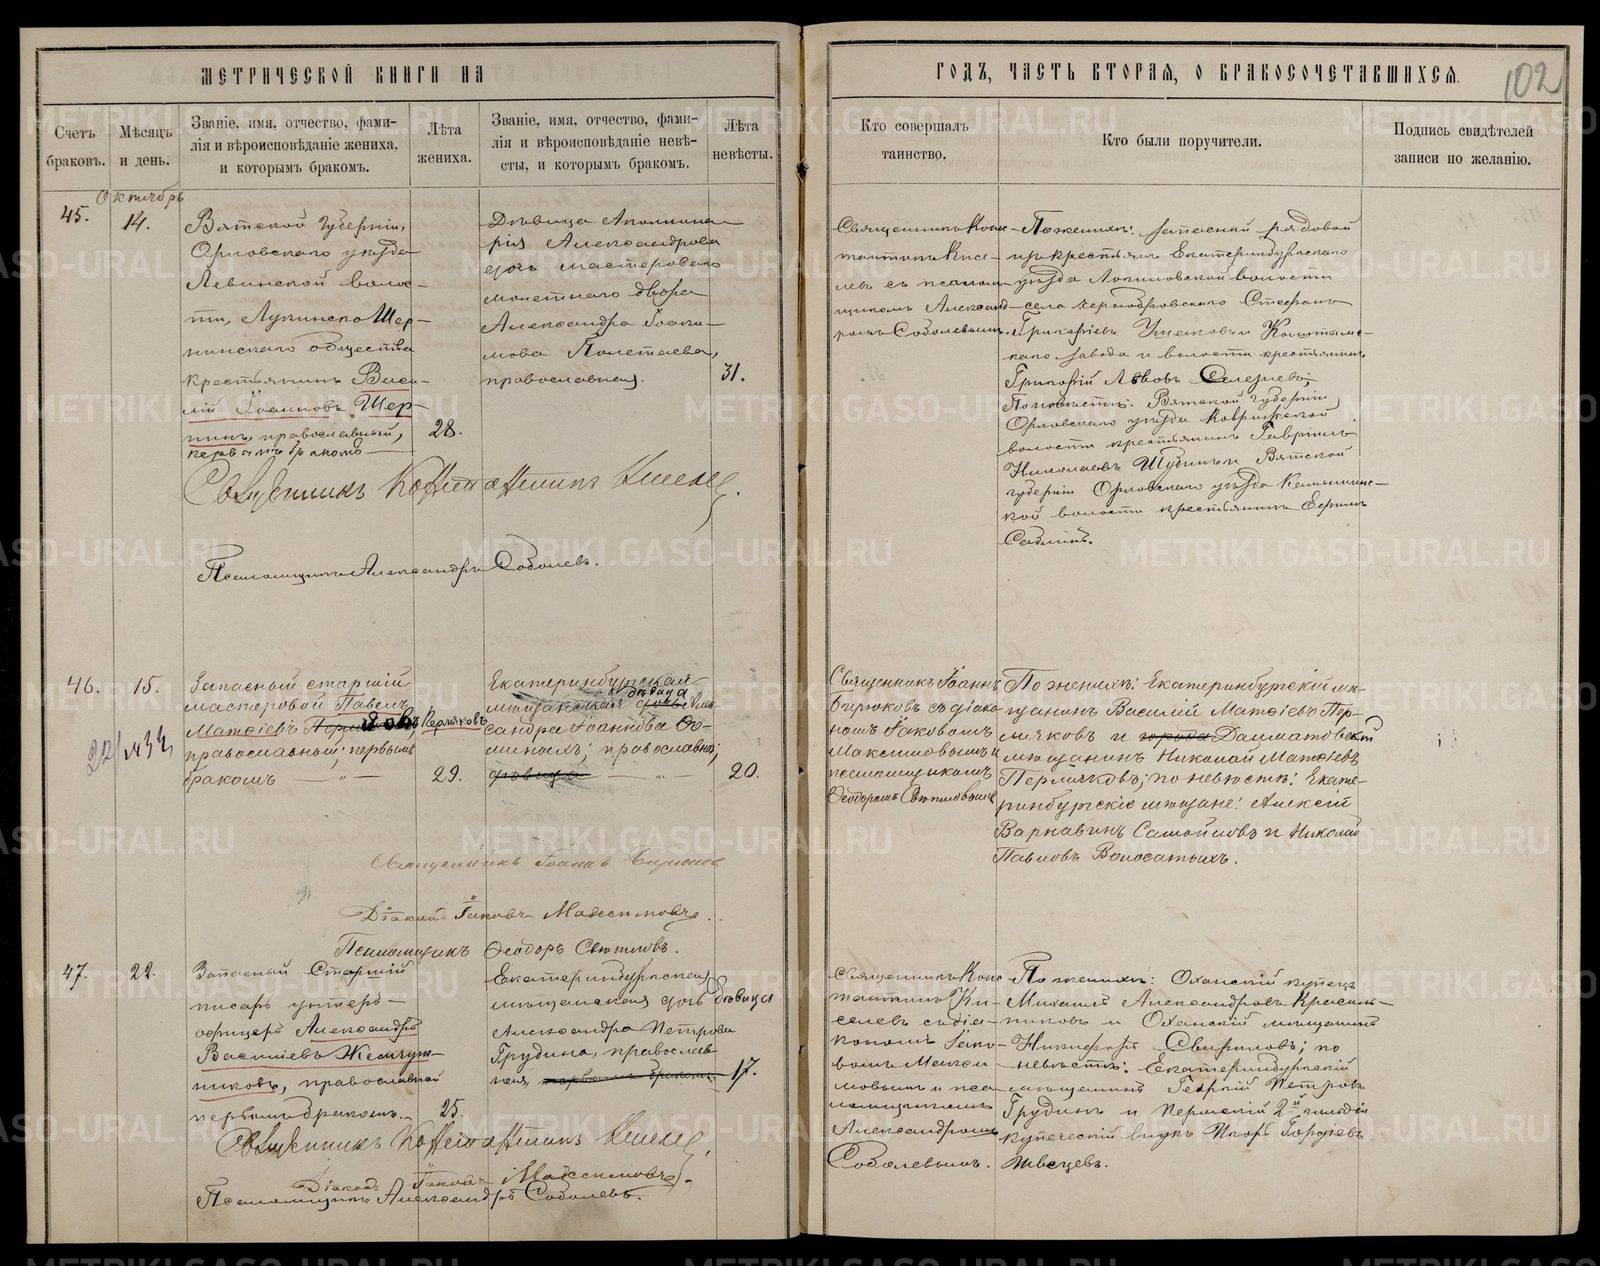 МЕТРИЧЕСКОЙ КНИГИ НА
ГОДЪ, ЧАСТЬ ВТОРАЯ, О БРАКОСОЧЕТАВШИХСЯ.
102
Счетъ браковъ.
Мѣсяцъ и день.
Званіе, имя, отчество, фами-
лія и вѣроисповѣданіе жениха,
и которымъ бракомъ.
Лѣта
жениха.
Званіе, имя, отчество, фами-
лія и вѣроисповѣданіе невѣ-
сты, и которымъ бракомъ.
Лѣта
невѣсты.
Кто совершалъ
таинство.
Кто были поручители.
Подпись свидѣтелей
записи по желанію.
Октябрь
45.
14.
Вятской губерніи,
Орловскаго уѣзда
Левинской волос-
ти, Лупинско Шер-
нинскаго общества
крестьянинъ Васи-
лій Іоанновъ Шер-
нинъ, православный,
первымъ бракомъ
28.
Дѣвица Аполлина
рія Александрова
дочь мастероваго
монетнаго двора
Александра Іоаки-
мова Полетаева,
православная.
31.
Священникъ Конс-
тантинъ Кисе-
левъ съ псалом-
щикомъ Александ-
ромъ Соболевымъ.
По женихѣ: запасный рядовой
изъ крестьянъ Екатеринбургскаго
уѣзда волости
села Чернобровскаго Стефанъ
Григорьевъ и
каго завода и волости крестьянинъ
Григорій Львовъ Селезневъ;
По невѣстѣ: Вятской губерніи,
Орловскаго уѣзда
волости крестьянинъ Гавріилъ
Николаевъ и Вятской
губерніи Орловскаго уѣзда
кой волости крестьянинъ
Священникъ Константинъ Киселев.
Псаломщикъ Александръ Соболевъ.
46.
15.
Запасный старшій
мастеровой Павелъ
Матѳіевъ Пермяковъ,
православный; первымъ
бракомъ — „ —
29.
Екатеринбургская
мѣщанская дѣвица Алек
сандра Іоаннова Ѳо-
миныхъ; православная;
дѣвица — „ —
20.
Священникъ Іоаннъ
Бирюковъ съ діако
номъ Іаковомъ
Максимовымъ и
псаломщикомъ
Ѳеодоромъ Свѣтловымъ
По женихѣ: Екатеринбургскій мѣ-
щанинъ Василій Матѳіевъ Пер-
мяковъ и города Далматовскій
мѣщанинъ Николай Матѳіевъ
Пермяковъ; по невѣстѣ: Екате-
ринбургскіе мѣщане: Алексій
Варнавинъ Самойловъ и Николай
Павловъ Волосатыхъ.
Священникъ Іоаннъ Бирюков
Діаконъ Іаковъ Максимовъ.
Псаломщикъ Ѳеодоръ Свѣтловъ.
47.
22.
Запасный Старшій
писарь унтеръ-
офицеръ Александръ
Василіевъ Жемчуж-
никовъ, православный
первымъ бракомъ.
25.
Екатеринбургская
мѣщанская дочь дѣвица
Александра Петрова
Грудина, православ-
ная, первымъ бракомъ
17.
Священникъ Конс
тантинъ Ки-
селевъ съ діа-
кономъ Іако-
вомъ Макси
мовымъ и пса
ломщикомъ
Александромъ
Соболевымъ.
По женихѣ: Оханскій купецъ
Михаилъ Александровъ Красиль-
никовъ и Оханскій мѣщанинъ
Никифоръ Свириловъ; по
невѣстѣ: Екатеринбургскій
мѣщанинъ Георгій Петровъ
Грудинъ и Пермскій 2й гильдіи
купеческій внукъ Гордіевъ
Швецовъ.
Священникъ Константинъ Киселев.
Діаконъ Іаковъ Максимовъ.
Псаломщикъ Александръ Соболевъ.
METRIKI.GASO-URAL.RU